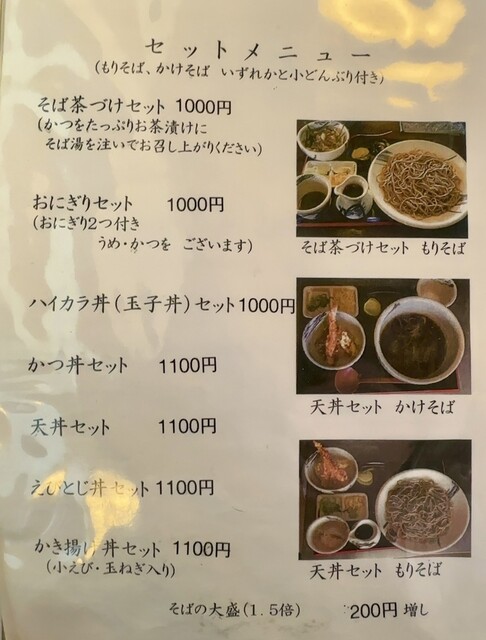 セットメニュー
(もりそば、かけそば いずれかと小どんぶり付き)
そば茶づけセット 1000円
(かつをたっぷりお茶漬けに
そば湯を注いでお召し上がりください)
そば茶づけセット もりそば
おにぎりセット 1000円
(おにぎり2つ付き
うめ・かつを ございます)
ハイカラ丼(玉子丼)セット1000円
かつ丼セット 1100円
天丼セット かけそば
天丼セット 1100円
えびとじ丼セット 1100円
かき揚げ丼セット 1100円
(小えび・玉ねぎ入り)
天丼セット もりそば
そばの大盛(1.5倍) 200円増し